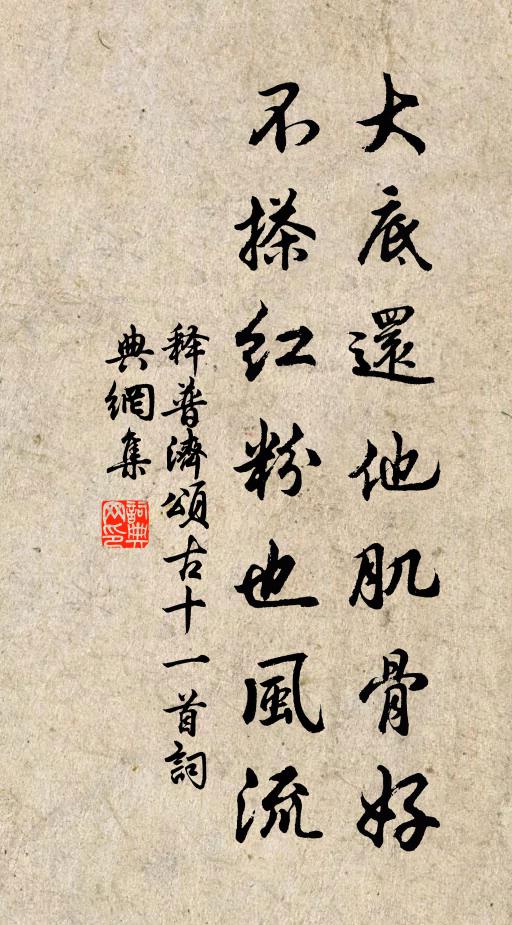 大底還他肌骨好
不搽紅粉也風流
释普濟頌古十一首詞
典網集
詞典
网印